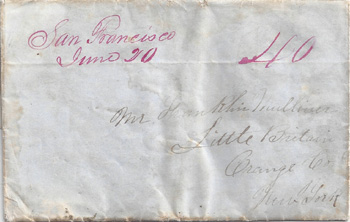 San Francisco
June 20
40
Mr Franklin
Little Britain
Orange Co
New York